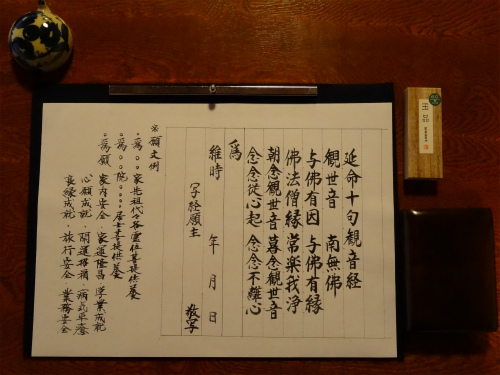 延命十句観音経
観世音 南無佛
与佛有因 与佛有縁
佛法僧縁 常楽我浄
朝念観世音 暮念観世音
念念従心起 念念不離心
為
維時 年 月 日
写経願主 敬写
※願文例
・為〇〇家先祖代々各霊位菩提供養
・為〇〇院〇〇〇〇居士菩提供養
・為願 家内安全 家運隆昌 学業成就
心願成就 開運招福 病気平癒
良縁成就・旅行安全 業務安全
玉品